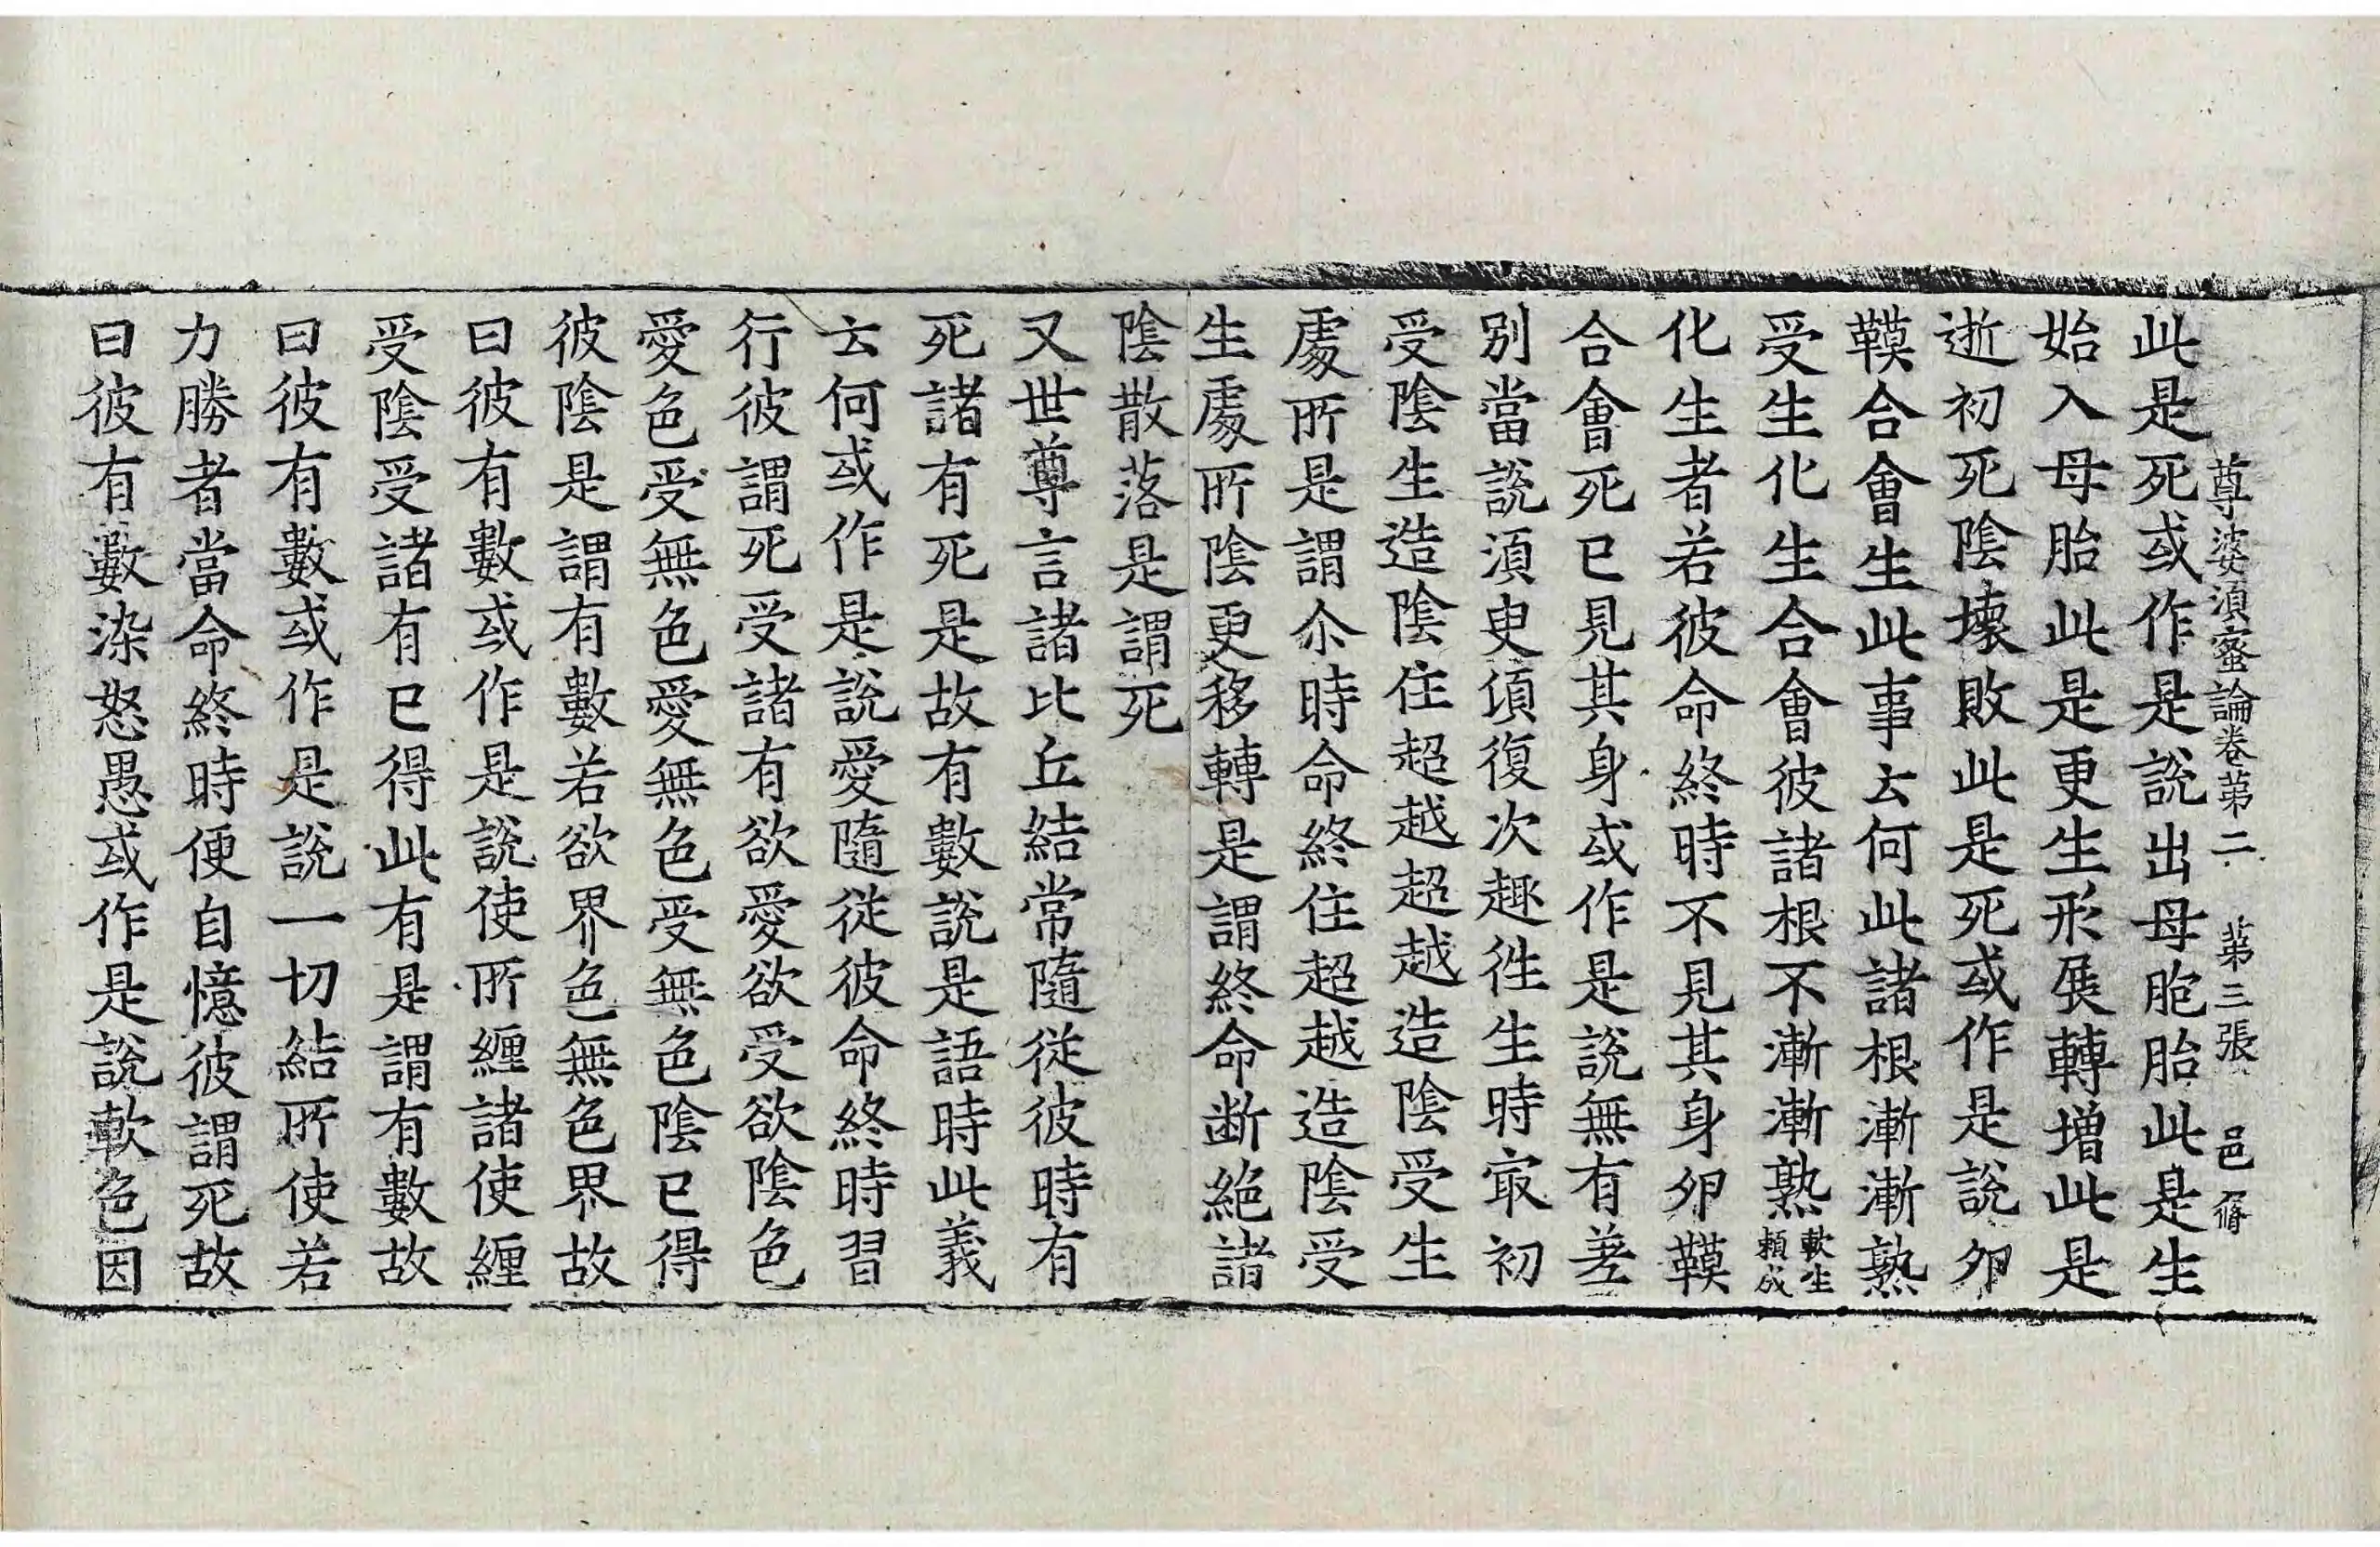 尊婆湏蜜論卷苐二　苐三張　邑　脩
此是死或作是說出母胞胎此是生
始入母胎此是更生形展轉增此是
逝初死陰壞敗此是死或作是說卵
䩋合會生此事云何此諸根漸漸熟
受生化生合會彼諸根不漸漸熟軟生頼成
化生者若彼命終時不見其身卵䩋
合會死已見其身或作是說無有差
別當說湏臾頃復次趣徃生時㝡初
受陰生造陰住超越超越造陰受生
處所是謂尒時命終住超越造陰受
生處所陰更移轉是謂終命断絕諸
陰散落是謂死
又世尊言諸比丘結常隨從彼時有
死諸有死是故有數說是語時此義
云何或作是說愛隨從彼命終時習
行彼謂死受諸有欲愛欲受欲陰色
愛色受無色愛無色受無色陰已得
彼陰是謂有數若欲界色無色界故
曰彼有數或作是說使所纏諸使纏
受陰受諸有已得此有是謂有數故
曰彼有數或作是說一切結所使若
力勝者當命終時便自憶彼謂死故
曰彼有數染怒愚或作是說軟色因